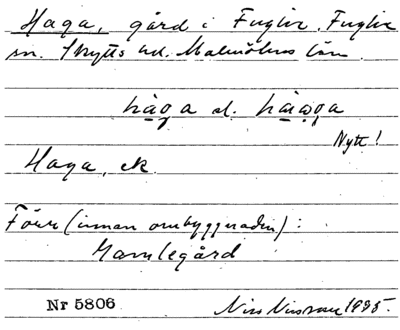 Haga, gård i Fuglie, Fuglie
sn. Skytts hd. Malmöhus län.
hàga el. hàwga
Nytt!
Haga, ek.
Förr (innan ombyggnaden):
Gamlegård
Nr 5806
Nils Nilsson 1995.